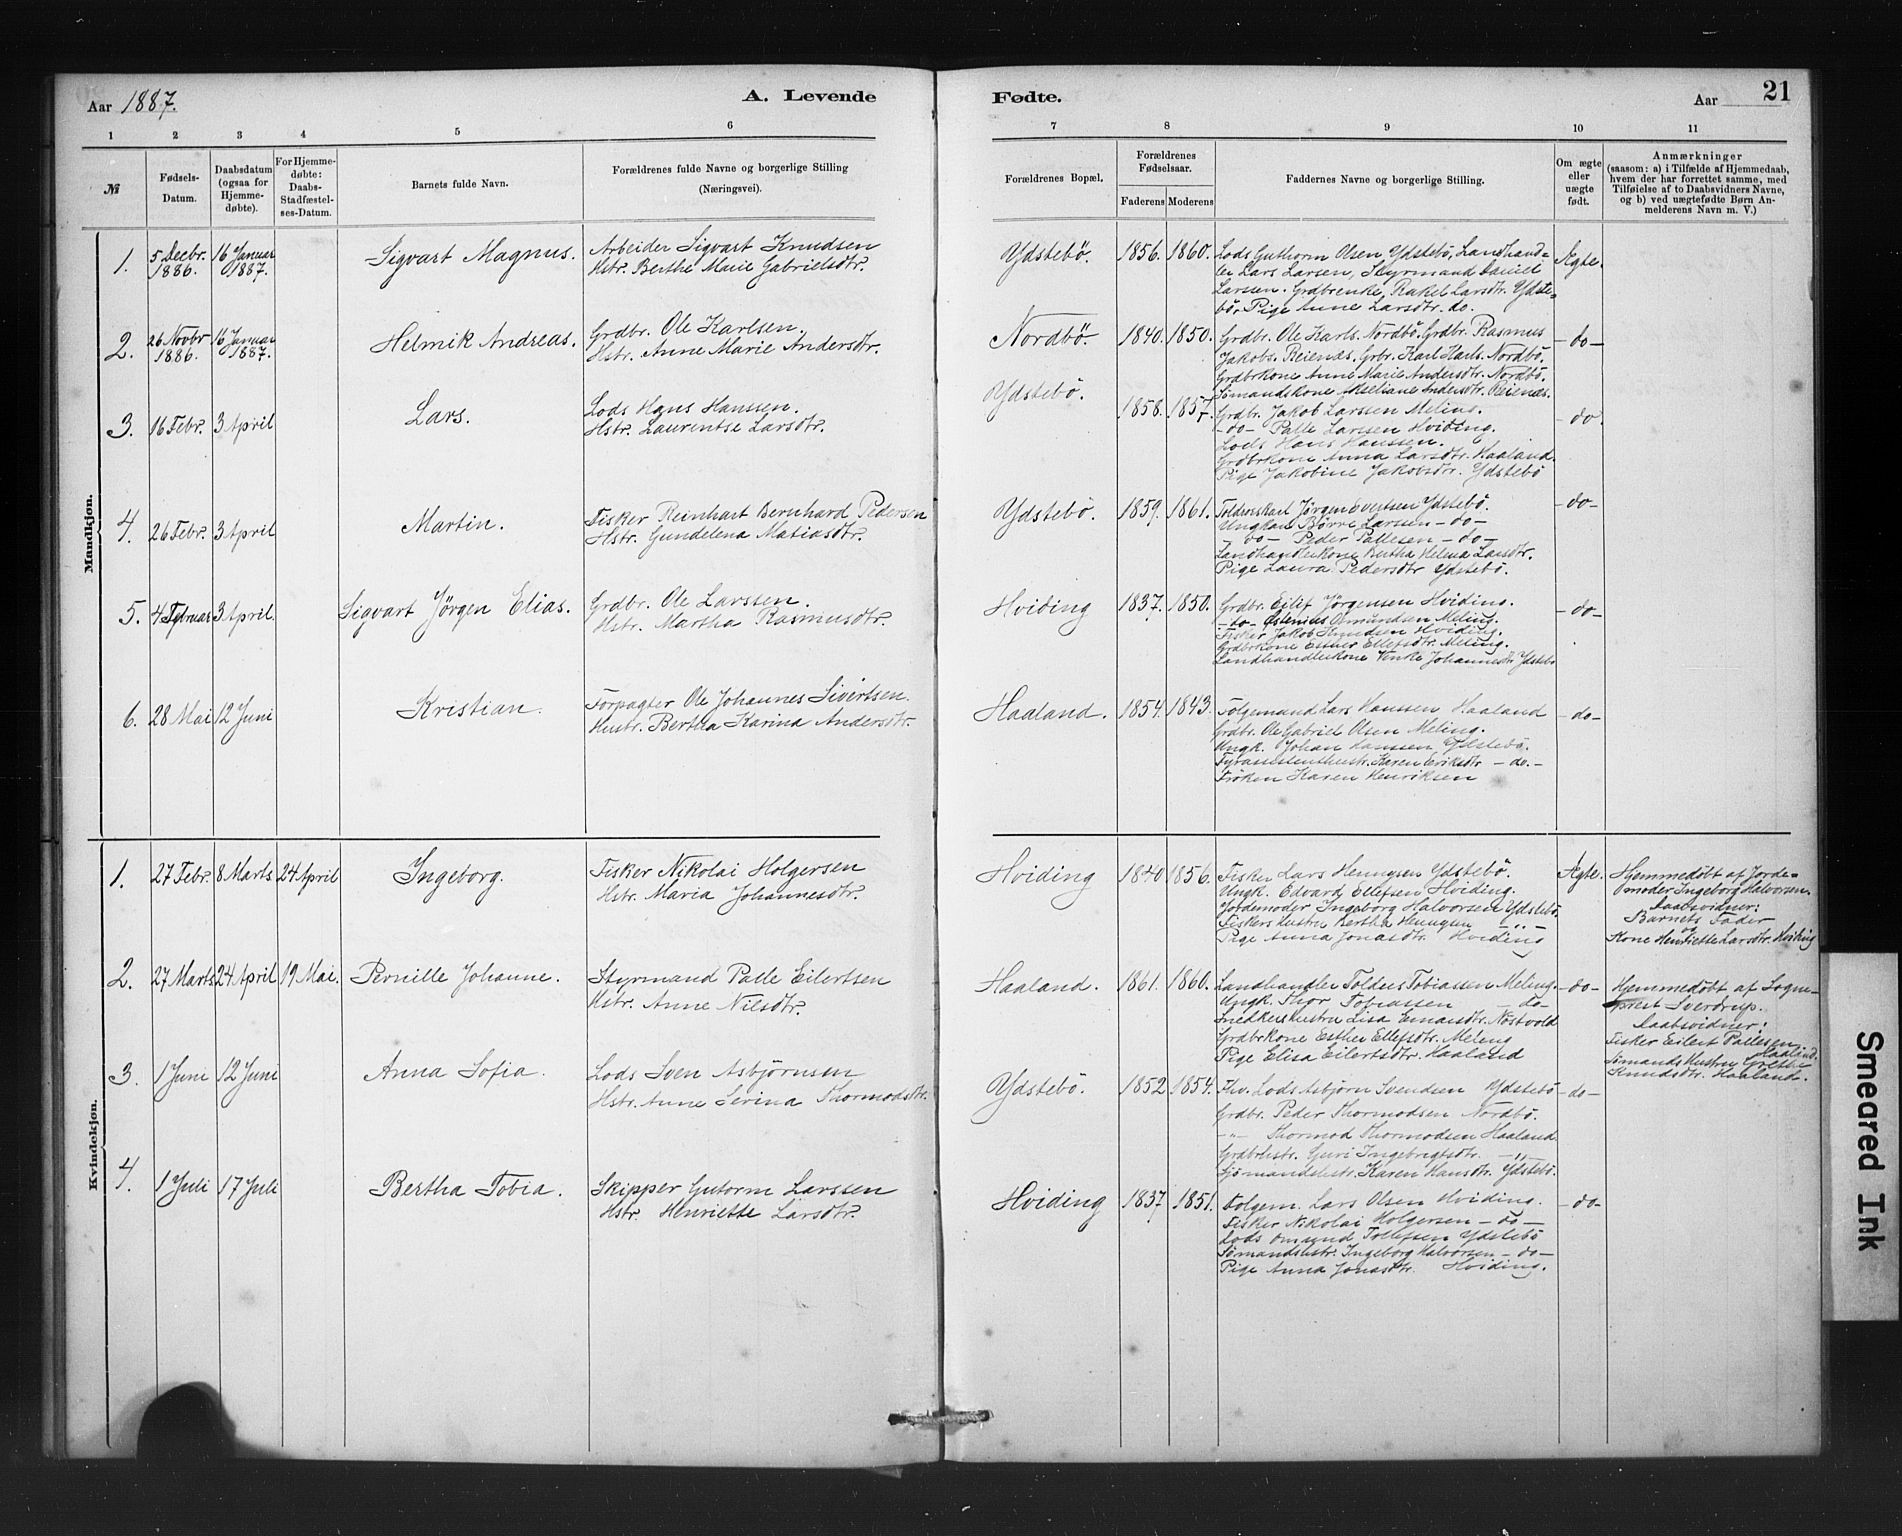 Aar 1887. A. Levende Fødte. Aar 21
1 2 3 4 5 6 7 8 9 10 11
№
Fødsels-Datum.
Daabsdatum (ogsaa for Hjemme-døbte).
For Hjemme-døbte: Daabs-Stadfæstel-ses-Datum.
Barnets fulde Navn.
Forældrenes fulde Navne og borgerlige Stilling
(Næringsvei).
Forældrenes Bopæl.
Forældrenes Fødselsaar.
Faderens Moderens
Faddernes Navne og borgerlige Stilling.
Om ægte eller uægte født.
Anmærkninger
(saasom: a) i Tilfælde af Hjemmedaab,
hvem der har forrettet samme, med
Tilføielse af to Daabsvidners Navne,
og b) ved uægtefødte Børn An-
melderens Navn m. V.)
Mandkjøn.
1. 5 Decbr. 1886. 16 Januar 1887. Sigvart Magnus.
Arbeider Sigvart Knudsen
Hstr. Berthe Marie Gabrielsdtr.
Ydstebö. 1856. 1860.
Lods Guthorm Olsen Ydstebö, Landhand=
ler Lars Larsen, Styrmand Daniel
Larsen. Grdbrenke, Rakel Larsdtr. Ydste=
bö. Pige Anne Larsdtr. do.
Ægte.
2. 26 Novbr 1886. 16 Januar 1887. Helmik Andreas.
Grdbr. Ole Karlsen.
Hstr. Anne Marie Andersdtr.
Nordbö. 1840. 1850.
Grdbr. Ole Karls. Nordbö. Grdbr. Rasmus
Jakobs. Reienæs. Grbr. Karl Karls. Nordbö.
Grdbrkone Anne Marie Andersdtr. Nordbö.
Sömandskone Andersdtr. Reienæs.
- do -
3. 16 Febr. 3 April Lars.
Lods Hans Hanssen.
Hstr. Laurentse Larsdtr.
Ydstebö. 1858. 1857.
Grdbr. Jakob Larssen Meling.
- do - Palle Larssen Hviding.
Lods Hans Hanssen.
Grdbrkone Anna Larsdtr. Haaland.
Pige Jakobine Jakobsdtr. Ydstebö
- do.
4. 26 Febr. 3 April Martin.
Fisker Reinhart Bernhard Pedersen
Hstr. Gundelena Matiasdtr.
Ydstebö. 1859. 1861.
Jörgen Evertsen Ydstebö.
Ungkarl Børre Larsen - do -
- do - Peder Pallesen - do -
Landhandlerkone Bertha Helena Larsdtr.
Pige Laura Pedersdtr Ydstebö.
- do -
5. 4 Februar 3 April. Sigvart Jörgen Elias.
Grdbr. Ole Larssen.
Hstr. Martha Rasmusdtr.
Hviding 1837. 1850.
Grdbr. Eilif Jörgensen Hviding.
- do - Østenius Osmundsen Meling.
Fisker Jakob Knudsen Hviding.
Grdbrkone Esther Ellefsdtr. Meling.
Landhandlerkone Venke Johannesdtr Ydstebö
- do -
6. 28 Mai 12 Juni Kristian.
Forpagter Ole Johannes Sivertsen
Hustr. Bertha Karina Andersdtr.
Haaland. 1854. 1843.
Folgemand Lars Hanssen Haaland
Grdbr. Ole Gabriel Olsen Meling.
Ungk. Johan Hanssen Ydstebö.
Karen Eriksdtr - do. -
Fröken Karen Henriksen
- do -
Kvindekjøn.
1. 27 Febr. 8 Marts 24 April Ingeborg.
Fisker Nikolai Holgersen
Hstr. Maria Johannesdtr.
Hviding 1840 1856.
Fisker Lars Henningsen Ydstebö.
Ungk. Edvard Ellefsen Hviding.
Jordemoder Ingeborg Halvorsen Ydstebö.
Fiskers Hustru Bertha Henningsen - „ -
Pige Anna Jonasdtr. Hviding
Ægte.
Hjemmedöbt af Jorde=
moder Ingeborg Halvorsen.
Daabsvidner:
Barnets Fader
og
Kone Henriette Larsdtr. Hviding
2. 27 Marts 24 April 19 Mai. Pernille Johanne.
Styrmand Palle Eilertsen
Hstr. Anne Nilsdtr.
Haaland. 1861. 1860.
Landhandler Tolders Tobiassen Meling.
Ungk. Thor Tobiassen - do -
Snedkershustru Lisa Nostvold
Grdbrkone Esther Ellefsdtr. Meling
Pige Elisa Eilertsdtr. Haaland
- do -
Hjemmedöbt af Sogne=
prest Sverdrup.
Daabsvidner:
Fisker Eilert Pallesen
Haaland.
Sömands Hustru Grethe
Knudsdtr. Haaland.
3. 1 Juni 12 Juni Anna Sofia.
Lods Sven Asbjörnsen
Hstr. Anne Serina Thormodsdtr.
Ydstebö. 1852 1854.
Fhv. Lods Asbjörn Svendsen Ydstebö
Grdbr. Peder Thormodsen Nordbö.
- „ - Thormod Thormodsen Haaland.
Grdbrhstr. Guri Ingebrigtsdtr. - „ -
Sjömandshstr. Karen Hansdtr. Ydstebö.
- do -
4. 1 Juli 17 Juli Bertha Tobia.
Skipper Gutorm Larssen
Hstr. Henriette Larsdtr.
Hviding 1837 1851.
Folgem. Lars Olsen Hviding.
Fisker Nikolai Holgersen - do -
Lods Omund Tollefsen Ydstebö
Sömandshstr. Ingeborg Halvorsen - do -
Pige Anna Jonasdtr. Hviding.
- do -
Smeared Ink